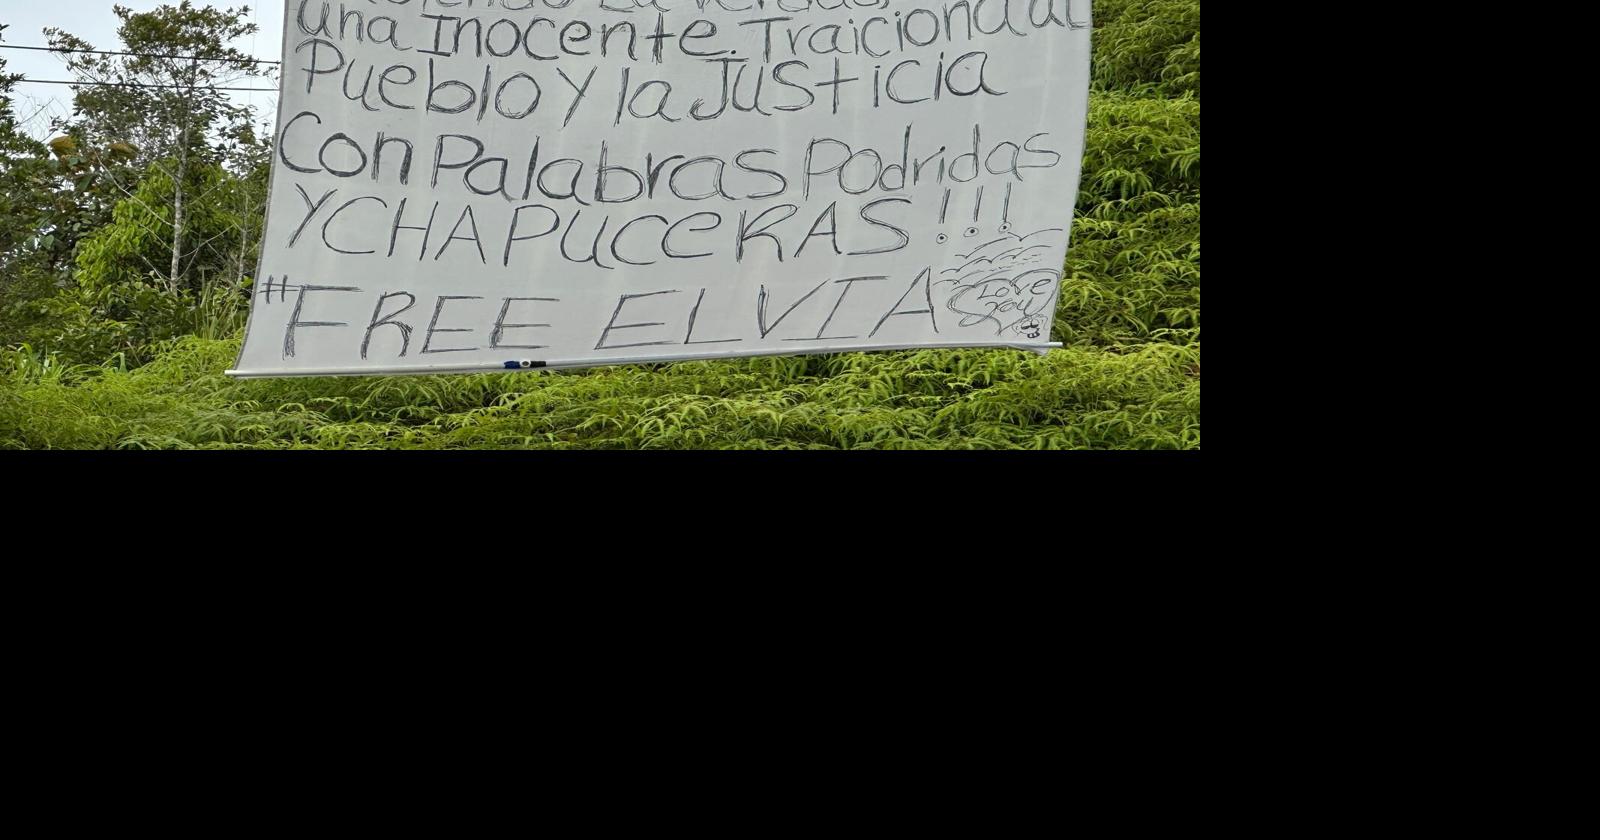 La verdad,
una Inocente. Traiciona al
Pueblo Y la Justicia
Con Palabras Podridas
Y CHAPUCERAS!!!
#FREE ELVIA
Love
you